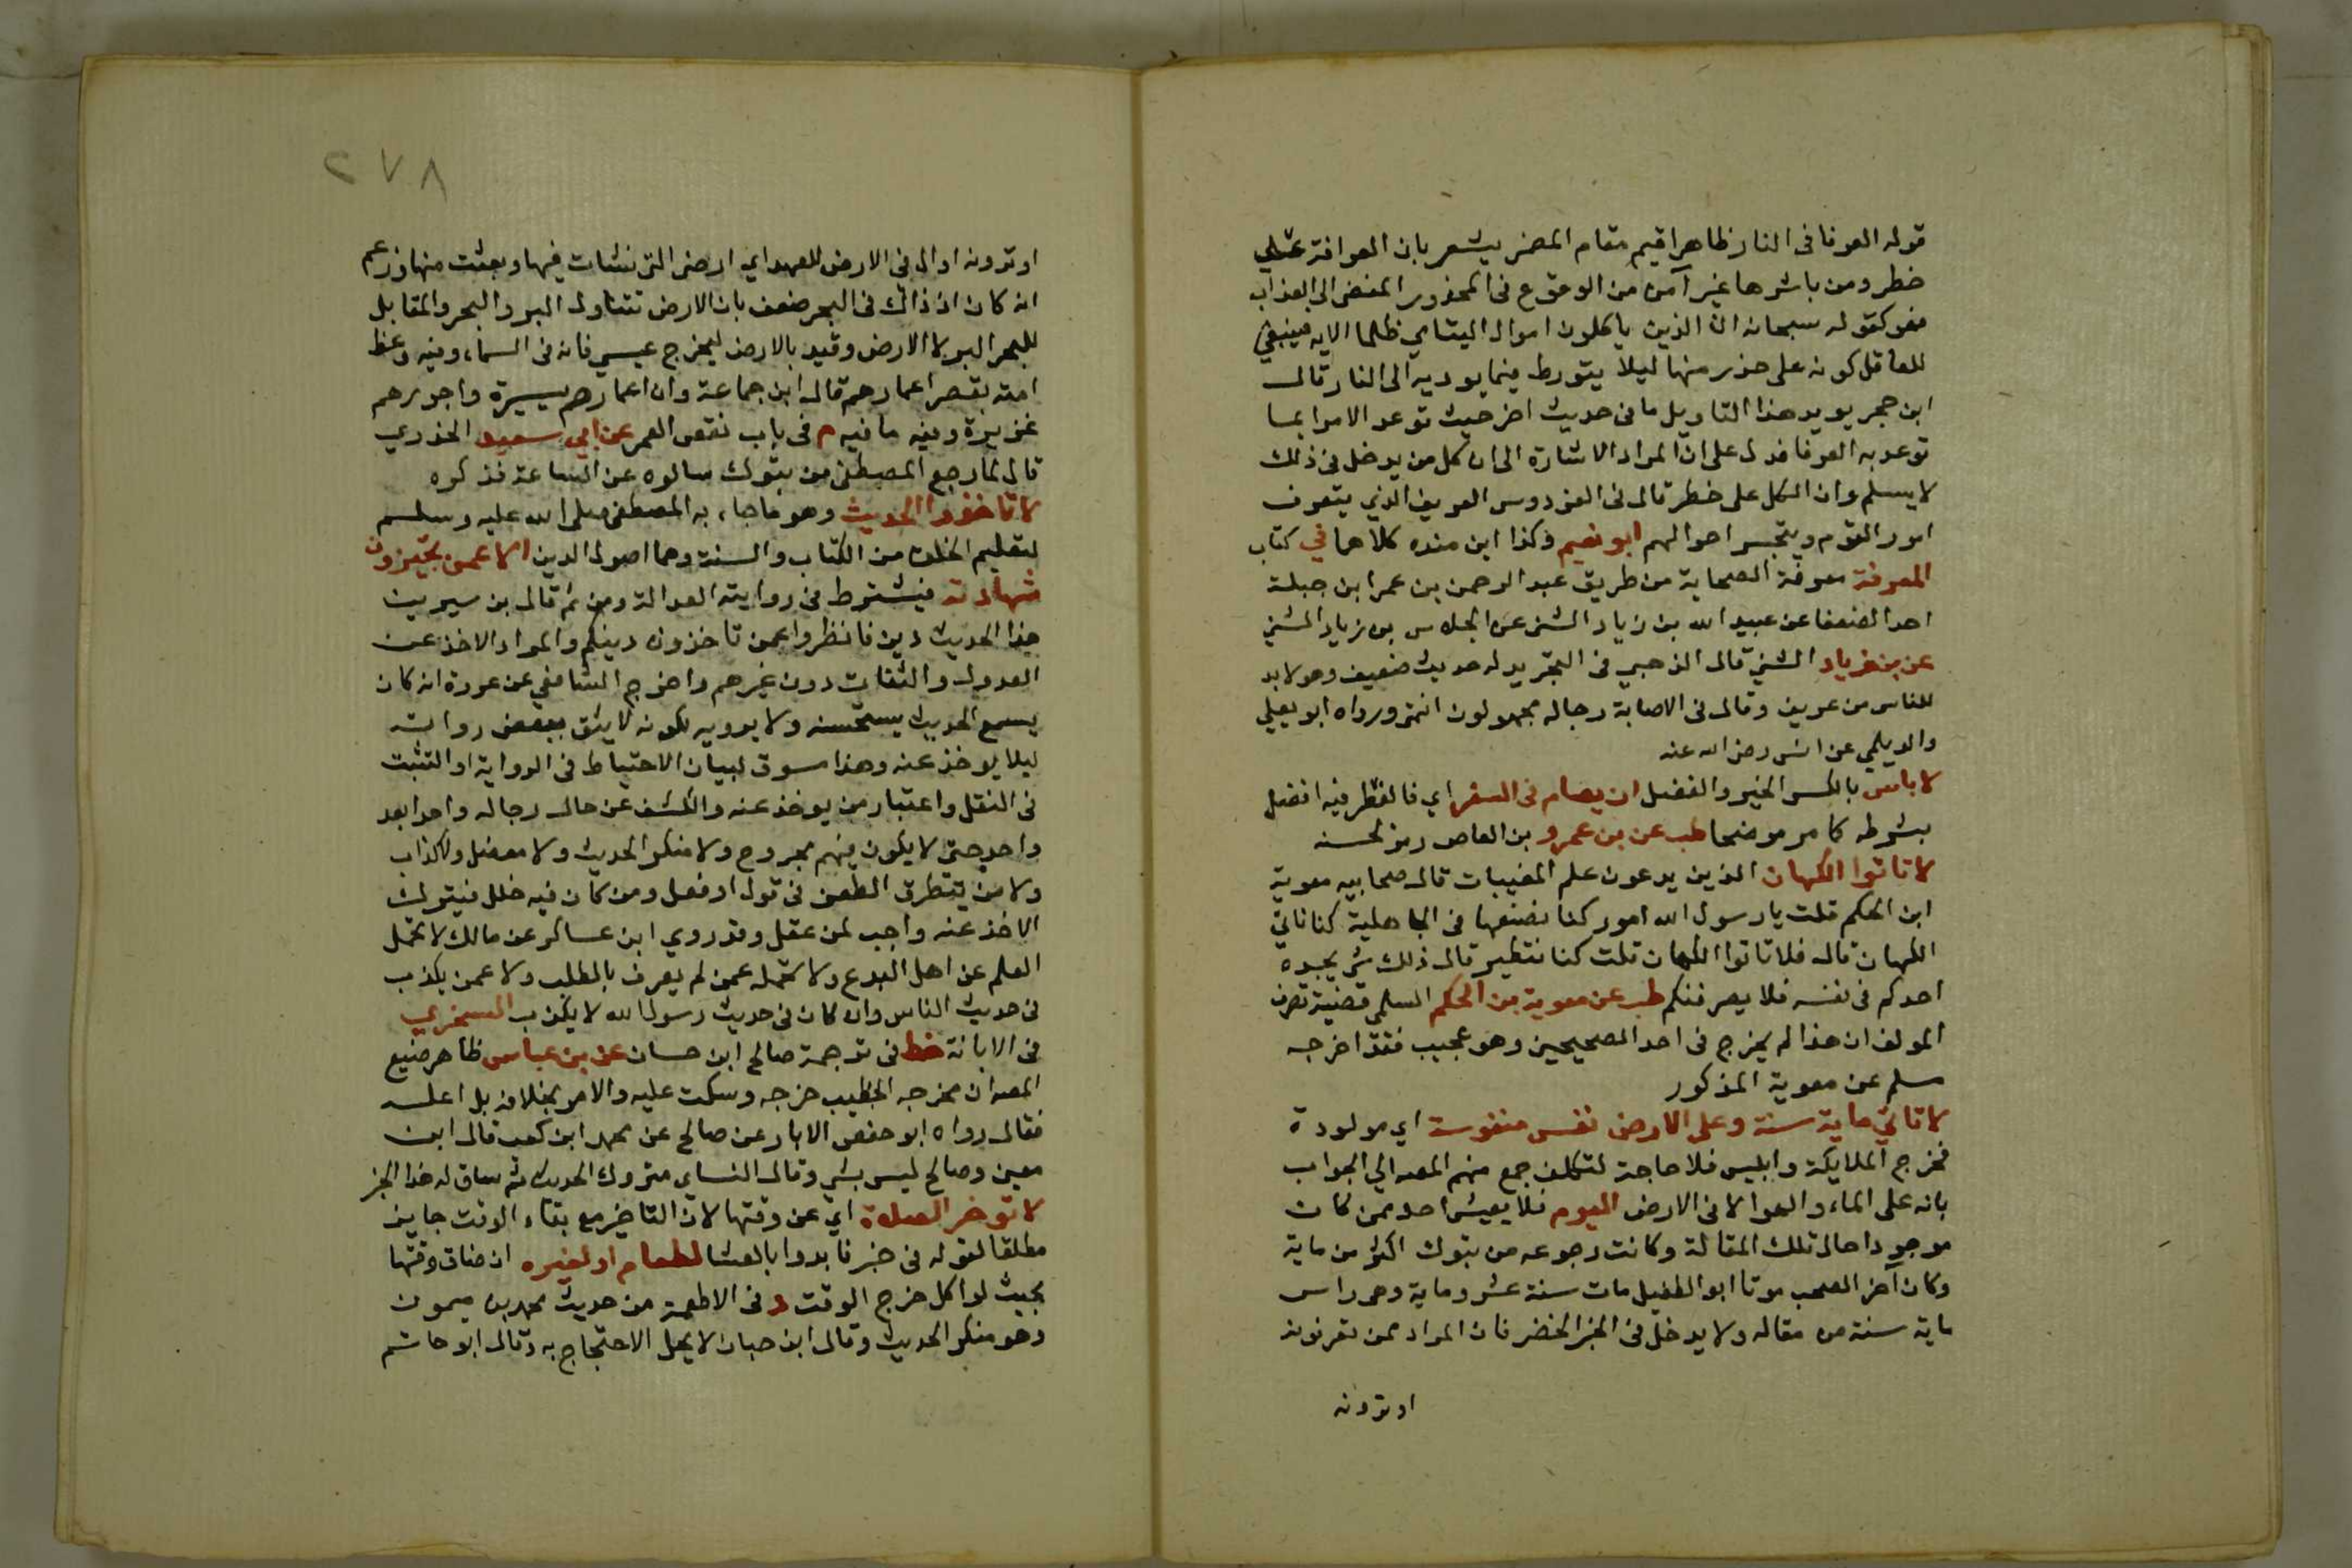 قوله العرفا فى النار ظاهر اقيم مقام المضمر يشعر بان العرافة على
خطر ومن باشرها غير آمن من الوقوع فى المحذور المفضى الى العذاب
فهو كقوله سبحانه ان الذين ياكلون اموال اليتامي ظلما الايه فينبغي
للعاقل كونه على حذر منها ليلا يتورط فيما يوديه الى النار قال
ابن حجر يويد هذا التاويل ما فى حديث اخر حيث توعد الامرا بما
توعد به العرفا فدل على ان المراد الاشارة الى ان كل من يدخل فى ذلك
لا يسلم وان الكل على خطر قال فى الفردوس العريف الذي يتعرف
امور القوم ويتجسس احوالهم ابو نعيم وكذا ابن منده كلاهما في كتاب
المعرفة معرفة الصحابة من طريق عبد الرحمن بن عمر ابن جبلة
احد الضعفا عن عبيد الله بن زياد الشنى عن الجلاس بن زياد الشني
عن بن زياد الشني قال الذهبي فى التجريد له حديث ضعيف وهو لا بد
للناس من عريف وقال فى الاصابة رجاله مجهولون انتهى ورواه ابو يعلي
والديلمي عن انس رضى الله عنه
لا باس بالكسر الخير والفضل ان يصام فى السفر اي فالفطر فيه افضل
بشرطه كما مر موضحا طب عن بن عمرو بن العاص رمز لحسنه
لا تاتوا الكهان الذين يدعون علم المغيبات قال صحابيه معوية
ابن الحكم قلت يا رسول الله امور كنا نصنعها فى الجاهلية كنا ناتي
الكهان قال فلا تاتوا الكهان قلت كنا نتطير قال ذلك شى يجده
احدكم فى نفسه فلا يصرفنكم طب عن معوية بن الحكم السلمي قضية تصرف
المولف ان هذا لم يخرج فى احد الصحيحين وهو عجيب فقد اخرجه
مسلم عن معوية المذكور
لا تاتي ماية سنة وعلى الارض نفس منفوسة اي مولودة
فخرج الملايكة وابليس فلا حاجة لتكلف جمع منهم المصه الي الجواب
بانه على الماء والهوا لا فى الارض اليوم فلا يعيش احد ممن كان
موجودا حال تلك المقالة وكانت رجوعه من تبوك اكثر من ماية
وكان آخر الصحب موتا ابو الطفيل مات سنة عشر وماية وهى راس
ماية سنة من مقاله ولا يدخل فى الخبر الخضر فان المراد ممن تعرفونه
او ترونه
٢٧٨
او ترونه او ال فى الارض للعهد اي ارضى التى نشات فيها وبعثت منها وزعم
انه كان اذ ذاك فى البحر ضعف بان الارض تتناول البر والبحر والمقابل
للبحر البر لا الارض وقيد بالارض ليخرج عيسى فانه فى السماء وفيه وعظ
امته بقصر اعمارهم قال ابن جماعة وان اعمارهم يسيرة واجورهم
غزيرة وفيه ما فيه م فى باب نقص العمر عن ابي سعيد الخدري
قال لما رجع المصطفى من تبوك سالوه عن الساعة فذكره
لا تاخذوا الحديث وهو ما جاء به المصطفى صلى الله عليه وسلم
لتعليم الخلق من الكتاب والسنة وهما اصول الدين الا عمن تجيزون
شهادته فيشترط فى روايته العدالة ومن ثم قال بن سيرين
هذا الحديث دين فانظروا عمن تاخذون دينكم والمراد الاخذ عن
العدول والثقات دون غيرهم واخرج الشافعي عن عروة انه كان
يسمع الحديث يستحسنه ولا يرويه لكونه لا يثق ببعض رواته
ليلا يوخذ عنه وهذا مسوق لبيان الاحتياط فى الرواية او التثبت
فى النقل واعتبار من يوخذ عنه والكشف عن حال رجاله واحدا بعد
واحد حتى لا يكون فيهم مجروح ولا منكر الحديث ولا مغفل ولا كذاب
ولا من يتطرق الطعن فى قول او فعل ومن كان فيه خلل فيترك
الاخذ عنه واجب لمن عقل وقد روي ابن عساكر عن مالك لا تحمل
العلم عن اهل البدع ولا تحمله عمن لم يعرف بالطلب ولا عمن يكذب
فى حديث الناس وان كان فى حديث رسول الله لا يكذب السجزي
فى الابانة خط فى ترجمة صالح ابن حسان عن بن عباس ظاهر صنيع
المصه ان مخرجه الخطيب خرجه وسكت عليه والامر بخلافه بل اعله
فقال رواه ابو حفص الابار عن صالح عن محمد ابن كعب قال ابن
معين وصالح ليس بشى وقال النساي متروك الحديث ثم ساق له هذا الخبر
لا توخر الصلاة اي عن وقتها لان التاخير مع بقاء الوقت جايز
مطلقا لقوله فى خبر فابدوا بالعشا لطعام او لغيره ان ضاق وقتها
بحيث لو اكل خرج الوقت د فى الاطعمة من حديث محمد بن ميمون
وهو منكر الحديث وقال ابن حبان لا يحل الاحتجاج به وقال ابو حاتم